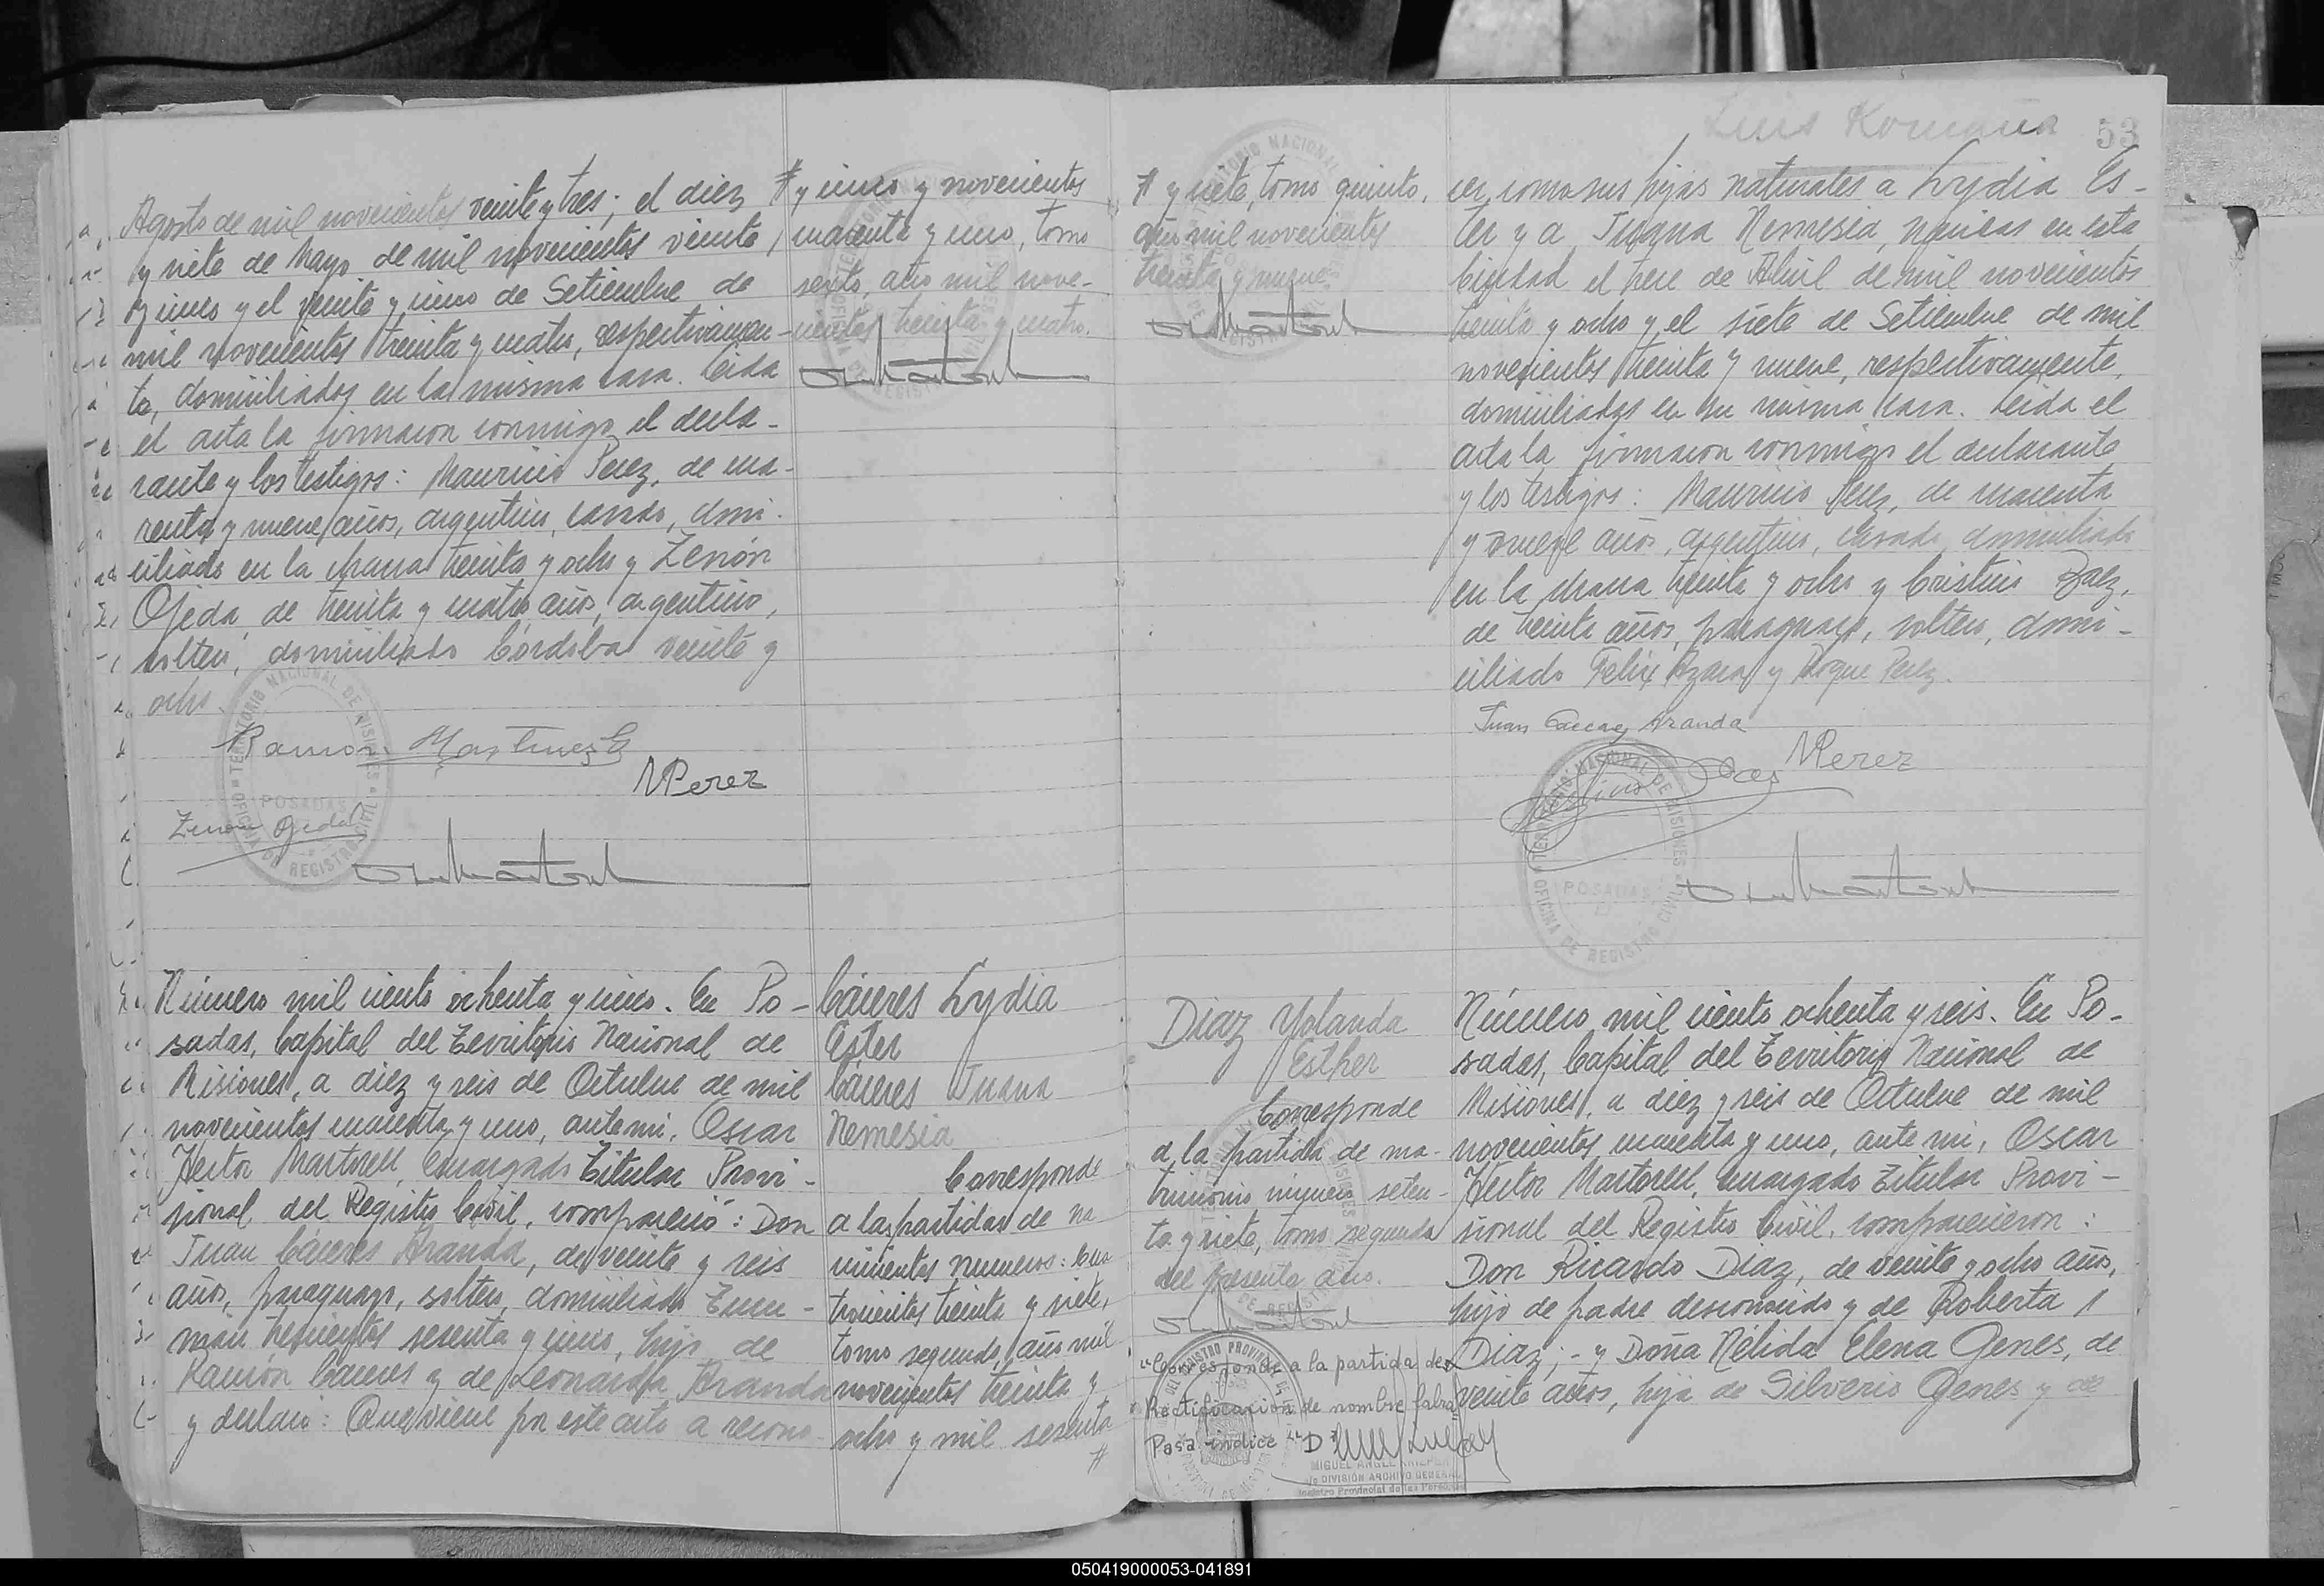 Agosto de mil novecientos veinte y tres; el diez
y siete de Mayo de mil novecientos veinte
y cinco y el veinte y cinco de Setiembre de
mil novecientos treinta y cuatro, respectivamen-
te, domiciliados en la misma casa. Leida
el acta la firmaron conmigo el decla-
rante y los testigos: Mauricio Perez, de cua-
renta y nueve años, argentino, casado, domi-
ciliado en la chacra treinta y ocho y Zenón
Ojeda, de treinta y cuatro años, argentino,
soltero, domiciliado Córdoba veinte y
ocho
Ramon Martinez G
MPerez
Zenon Ojeda
TERRITORIO NACIONAL DE MISIONES
POSADAS
OFICINA DE REGISTRO CIVIL
# y cinco y novecientos
cuarenta y uno, tomo
sexto, año mil nove-
cientos treinta y cuatro.
Número mil ciento ochenta y cinco. En Po-
sadas, Capital del Territorio Nacional de
Misiones, a diez y seis de Octubre de mil
novecientos cuarenta y uno, ante mi, Oscar
Hector Martorell, Encargado Titular Provi-
sional del Registro Civil, compareció: Don
Juan Cáceres Aranda, de veinte y seis
años, paraguayo, soltero, domiciliado Tucu-
mán trescientos sesenta y cinco, hijo de
Ramón Cáceres y de Leonarda Aranda
y declaró: Que viene por este acto a recono-
Cáceres Lydia
Ester
Cáceres Juana
Nemesia
Corresponde
a las partidas de na
cimientos numeros: cua
trocientos treinta y siete,
tomo segundo, año mil
novecientos treinta y
ocho y mil sesenta
#
Luis Romaña
53
# y siete, tomo quinto,
año mil novecientos
treinta y nueve
cer como sus hijas naturales a Lydia Es-
ter y a Juana Nemesia, nacidas en esta
Ciudad el trece de Abril de mil novecientos
treinta y ocho y el siete de Setiembre de mil
novecientos treinta y nueve, respectivamente,
domiciliadas en su misma casa. Leida el
acta la firmaron conmigo el declarante
y los testigos: Mauricio Perez, de cuarenta
y nueve años, argentino, casado, domiciliado
en la chacra treinta y ocho y Cristino Baez,
de treinta años, paraguayo, soltero, domi-
ciliado Felix Azara y Roque Perez.
Juan Caceres Aranda
MPerez
TERRITORIO NACIONAL DE MISIONES
POSADAS
OFICINA DE REGISTRO CIVIL
Diaz Yolanda
Esther
Corresponde
a la partida de ma-
trimonio número seten-
ta y siete, tomo segundo
del presente año.
"Corresponde a la partida de
Rectificación de nombre
Pasa indice "D"
MIGUEL ANGEL
DIVISIÓN ARCHIVO GENERAL
Registro Provincial de las Personas
Número mil ciento ochenta y seis. En Po-
sadas, Capital del Territorio Nacional de
Misiones, a diez y seis de Octubre de mil
novecientos cuarenta y uno, ante mi, Oscar
Hector Martorell, Encargado Titular Provi-
sional del Registro Civil, comparecieron:
Don Ricardo Diaz, de veinte y ocho años,
hijo de padre desconocido y de Roberta
Diaz; - y Doña Nélida Elena Genes, de
veinte años, hija de Silverio Genes y de
050419000053-041891